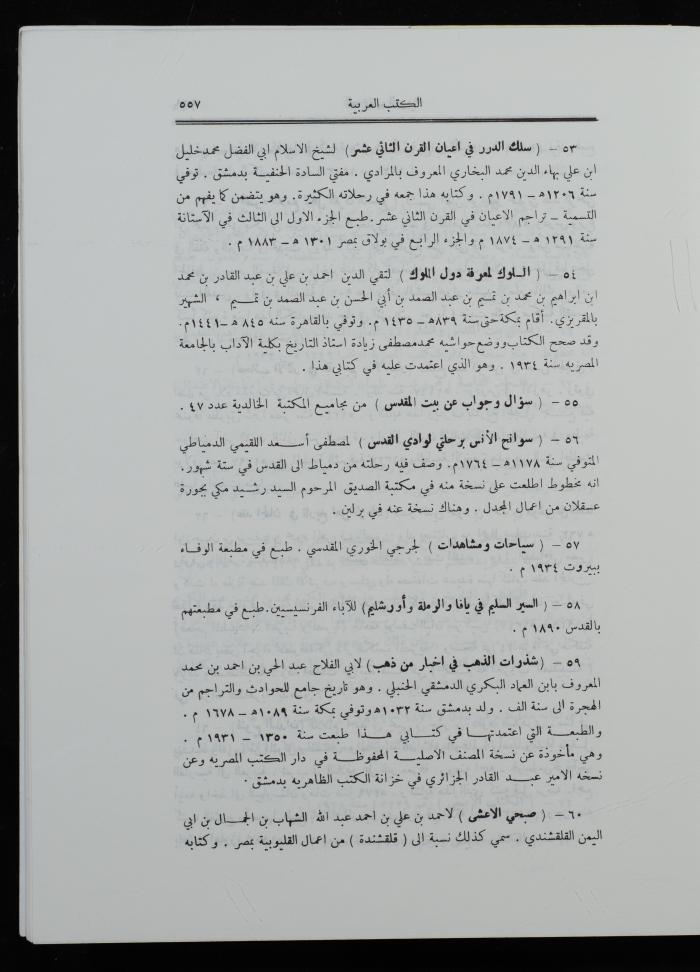 الكتب العربية ٥٥٧
٥٣ – ( سلك الدرر في اعيان القرن الثاني عشر ) لشيخ الاسلام ابي الفضل محمدخليل
ابن علي بهاء الدين محمد البخاري المعروف بالمرادي . مفتي السادة الحنفية بدمشق . توفي
سنة ١٢٠٦ﻫ – ١٧٩١م . وكتابه هذا جمعه في رحلاته الكثيرة. وهو يتضمن كما يفهم من
التسمية – تراجم الاعيان في القرن الثاني عشر.طبع الجزء الاول الى الثالث في الآستانة
سنة ١٢٩١ ﻫ – ١٨٧٤ م والجزء الرابع في بولاق بمصر ١٣٠١ ﻫ – ١٨٨٣ م .
٥٤ – ( السلوك لمعرفة دول الملوك ) لتقي الدين احمد بن علي بن عبد القادر بن محمد
ابن ابراهيم بن محمد بن تميم بن عبد الصمد بن أبي الحسن بن عبد الصمد بن تميم ، الشهير
بالمقريزي. أقام بمكة حتى سنة ٨٣٩ﻫ – ١٤٣٥ م. وتوفي بالقاهرة سنه ٨٤٥ ﻫ –١٤٤١م.
وقد صحح الكتاب ووضع حواشيه محمدمصطفى زيادة استاذ التاريخ بكلية الآداب بالجامعة
المصريه سنة ١٩٣٤ . وهو الذي اعتمدت عليه في كتابي هذا .
٥٥ – ( سؤال وجواب عن بيت المقدس ) من مجاميع المكتبة الخالدية عدد ٤٧ .
٥٦ – ( سوانح الأنس برحلتي لوادي القدس ) لمصطفى أسعد اللقيمي الدمياطي
المتوفي سنة ١١٧٨ﻫ – ١٧٦٤م. وصف فيه رحلته من دمياط الى القدس في ستة شهور.
انه مخطوط اطلعت على نسخة منه في مكتبة الصديق المرحوم السيد رشيد مكي بجورة
عسقلان من اعمال المجدل . وهناك نسخة عنه في برلين .
٥٧ – ( سياحات ومشاهدات ) لجرجي الخوري المقدسي . طبع في مطبعة الوفاء
ببيروت ١٩٣٤ م .
٥٨ – ( السير السليم في يافا والرملة وأورشليم) للآباء الفرنسيسيين.طبع في مطبعتهم
بالقدس ١٨٩٠ م .
٥٩ – (شذرات الذهب في اخبار من ذهب) لابي الفلاح عبد الحي بن احمد بن محمد
المعروف بابن العماد البكري الدمشقي الحنبلي . وهو تاريخ جامع للحوادث والتراجم من
الهجرة الى سنة الف . ولد بدمشق سنة ١٠٣٢ ﻫ وتوفي بمكة سنة ١٠٨٩ﻫ – ١٦٧٨ م .
والطبعة التي اعتمدتها في كتابي هذا طبعت سنة ١٣٥٠ – ١٩٣١ م .
وهي مأخوذة عن نسخة المصنف الاصلية المحفوظة في دار الكتب المصريه وعن
نسخه الامير عبد القادر الجزائري في خزانة الكتب الظاهريه بدمشق .
٦٠ – ( صبحي الاعشى ) لاحمد بن علي بن احمد عبد الله الشهاب بن الجمال بن ابي
اليمن القلقشندي . سمي كذلك نسبة الى ( قلقشندة ) من اعمال القليوبية بمصر . وكتابه